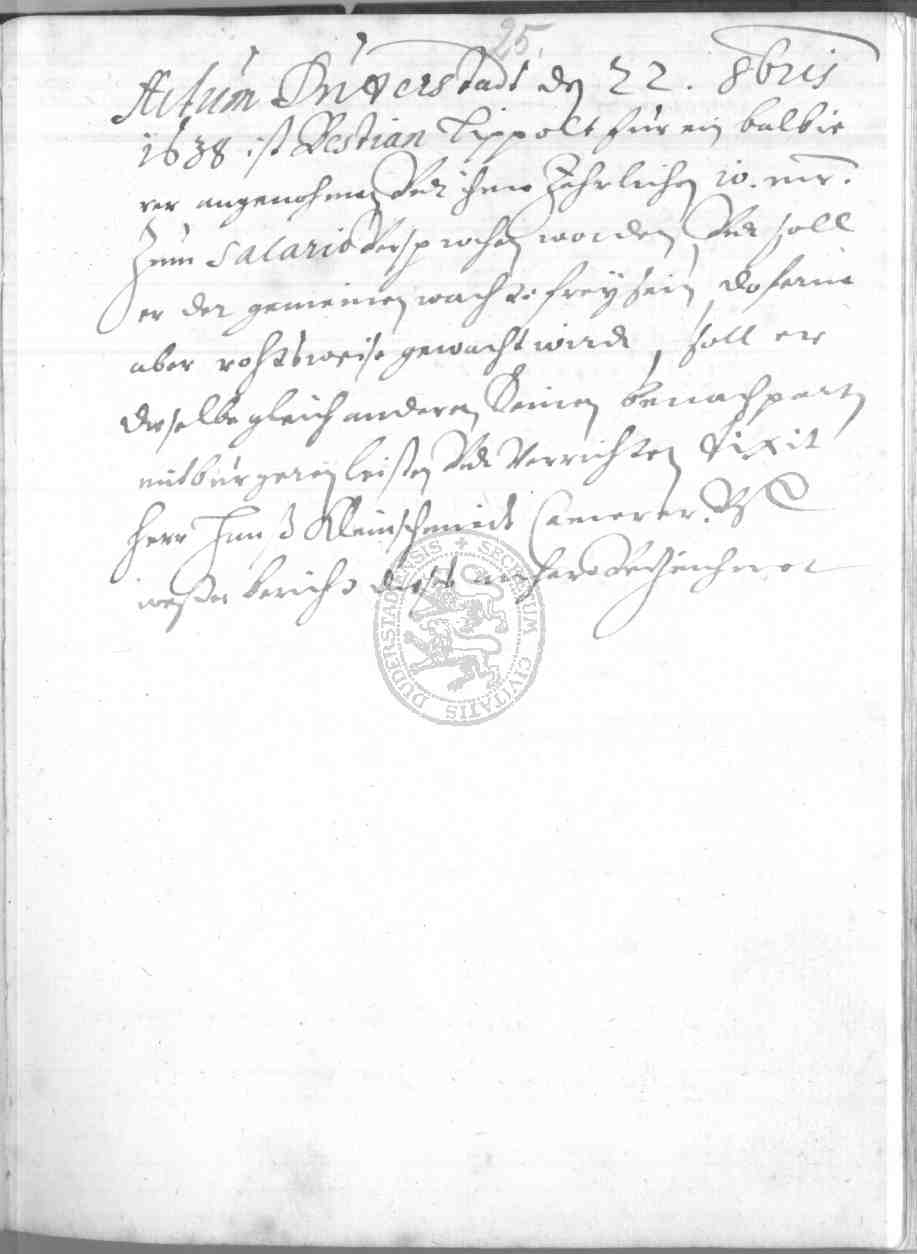 25.
Actum Duderstadt den 22. 8bris
1638 ist Bestian Lippolt für ein balbie
rer angenohmen Und ihme Jehrlichen 10. mr.
Zum Salario Versprochen worden, Und soll
er der gemeinen wacht frey sein, doferne
aber rohttsweise gewacht wirdt, soll er
dieselbe gleich anderen Seinen benachparten
mitbürgeren leisten Und Verrichten dixit
Herr Hanß Kleinschmidt Camerer.
berichts
SECRETUM CIVITATIS DUDERSTADENSIS